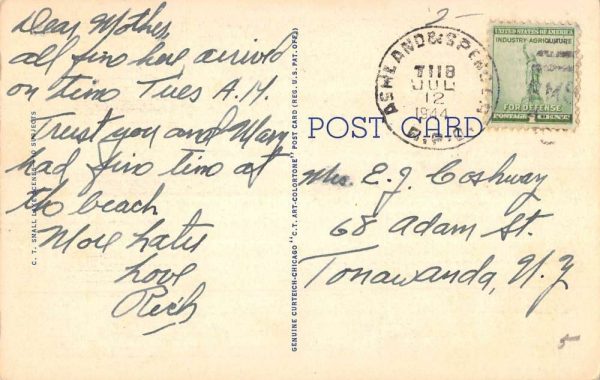 Dear Mother,
All fine here arrived
on time Tues A.M.
Trust you and Mary
had fine time at
the beach
More later
Love
Rich
C. T. SMALL SCENES SUBJECTS
GENUINE CURTEICH-CHICAGO "C.T. ART-COLORTONE" POST CARD (REG. U.S. PAT. OFF.)
POST CARD
ASHLAND & SPENCER
T118
JUL
12
1944
R.P.O.
UNITED STATES OF AMERICA
INDUSTRY AGRICULTURE
FOR DEFENSE
POSTAGE 1 CENT
2-
Mrs. E. J. Coshway
68 Adam St.
Tonawanda, N.Y
5-